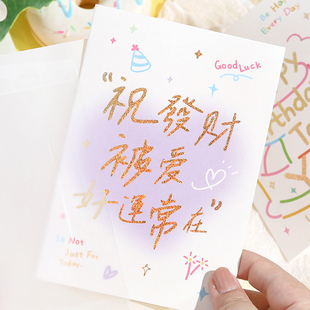 Good Luck
“祝發財
被愛
好運常在”
Not
Just For
Today.
Be Ha
Every Day.